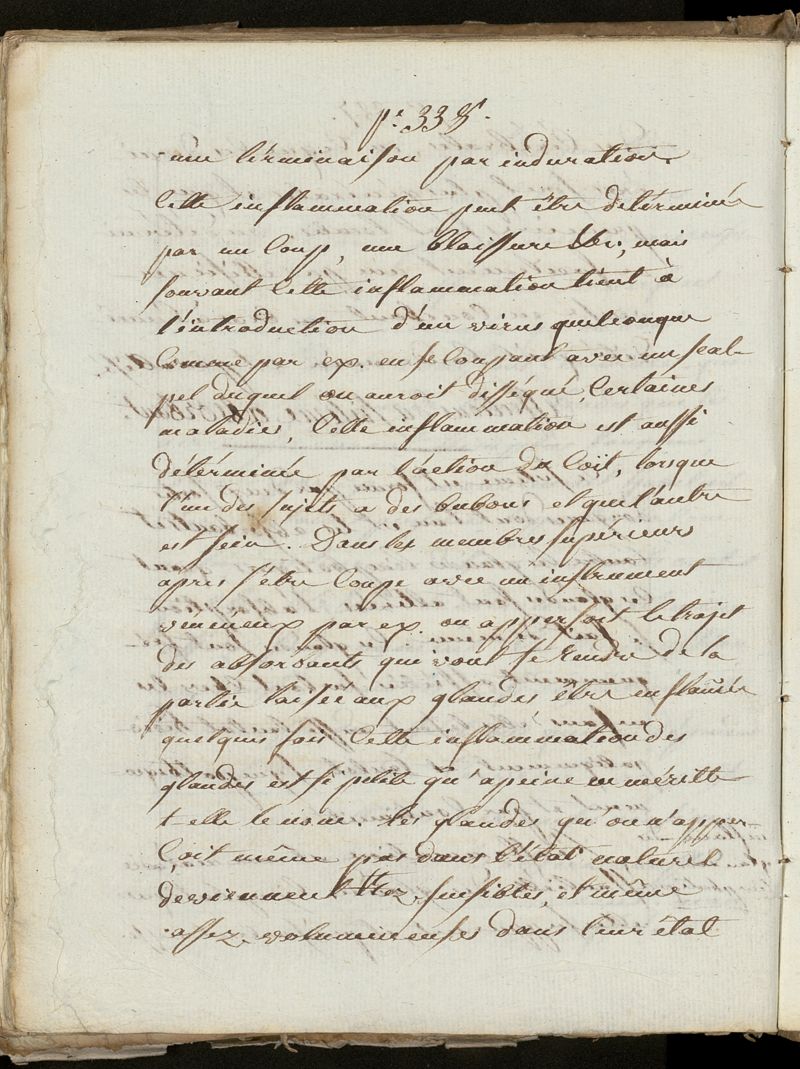 pe. 338.
une términaison par induration.
Cette inflammation peut être déterminée
par un Coup, une blaissure &c; mais
souvant Cette inflammation tient à
l'introduction d'un virus quelconque
Comme par ex. en se Coupant avec un scal-
pel duquel on auroit disséqué, Certaines
maladies, Cette inflammation est aussi
déterminée par l'action du Coït, lorsque
l'un des sujets a des bubons et que l'autre
est sein. Dans les membres supérieurs
après s'être Coupé avec un instrument
venimeux par ex. on apperçoit le trajet
des absorbants qui vont se rendre de la
partie laisée aux glandes être enflâmée
quelques fois Cette inflammation des
glandes est si petite qu'apeine en méritte
t elle le nom. les glandes qu'on n'apper-
Çoit même pas dans l'état naturel
deviennent assez sensibles, et même
assez volumineuses dans leur état